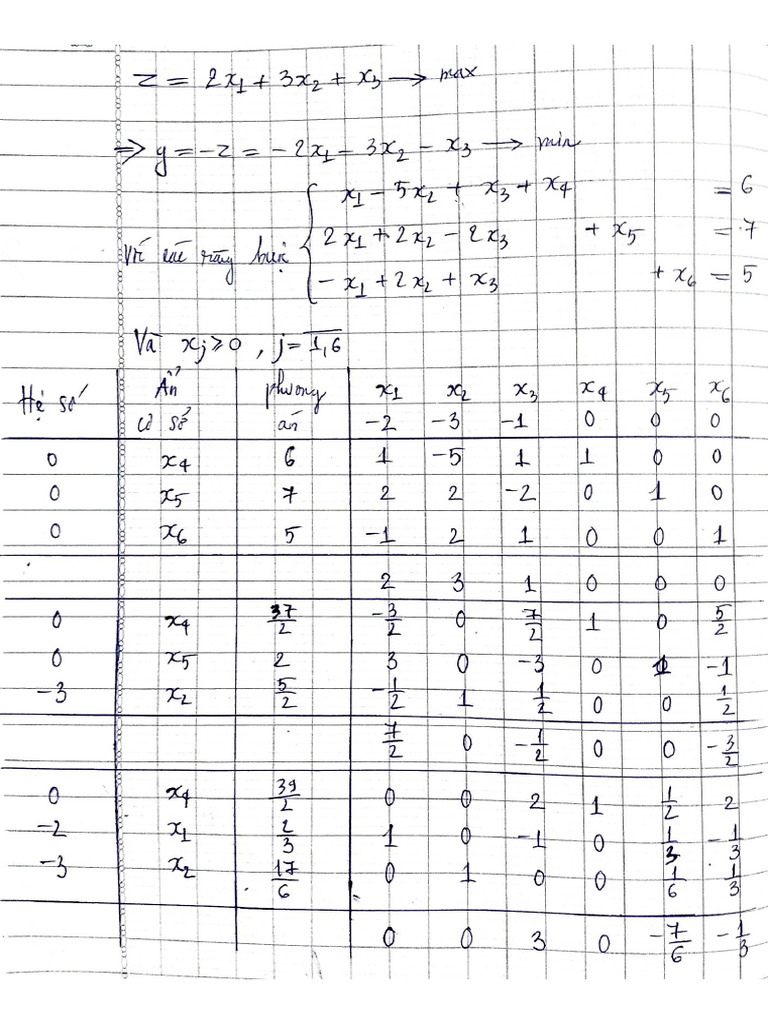 z = 2x₁ + 3x₂ + x₃ → max
⇒ y = -z = -2x₁ - 3x₂ - x₃ → min
x₁ - 5x₂ + x₃ + x₄ = 6
Với các ràng buộc { 2x₁ + 2x₂ - 2x₃ + x₅ = 7
-x₁ + 2x₂ + x₃ + x₆ = 5
Và xⱼ ≥ 0 , j = 1,6
Hệ số Ẩn cơ sở phương án x₁ x₂ x₃ x₄ x₅ x₆
-2 -3 -1 0 0 0
0 x₄ 6 1 -5 1 1 0 0
0 x₅ 7 2 2 -2 0 1 0
0 x₆ 5 -1 2 1 0 0 1
2 3 1 0 0 0
0 x₄ 37/2 -3/2 0 7/2 1 0 5/2
0 x₅ 2 3 0 -3 0 1 -1
-3 x₂ 5/2 -1/2 1 1/2 0 0 1/2
7/2 0 -1/2 0 0 -3/2
0 x₄ 39/2 0 0 2 1 1/2 2
-2 x₁ 2/3 1 0 -1 0 1/3 -1/3
-3 x₂ 17/6 0 1 0 0 1/6 1/3
0 0 3 0 -7/6 -1/3